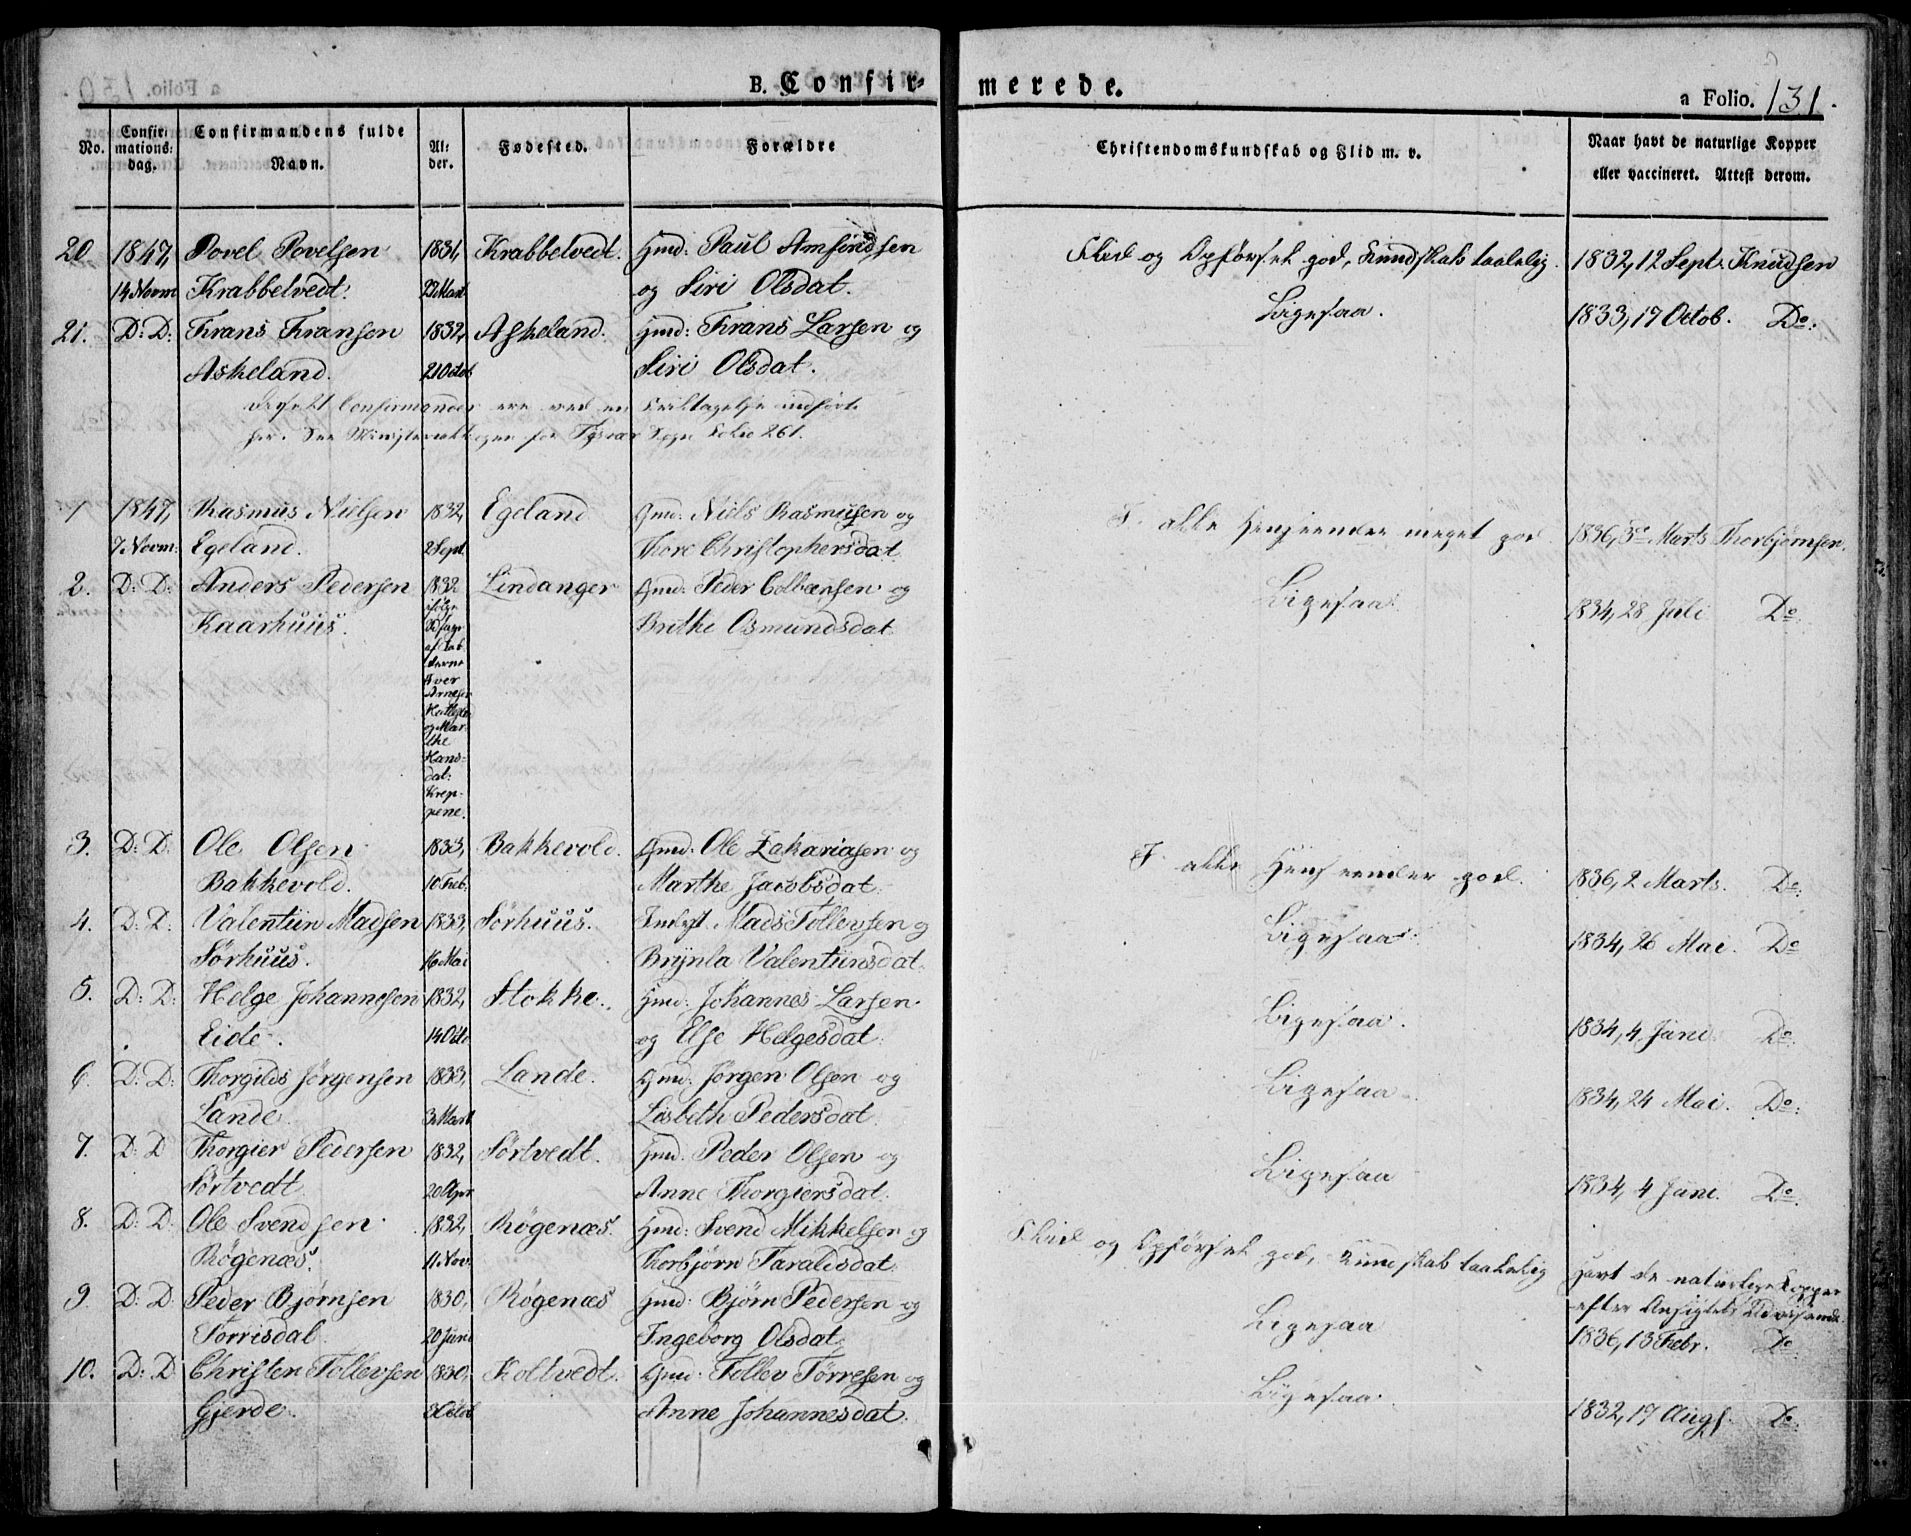 B. Confir-
merede.
a Folio. 131.
No.
Confir-
mations-
dag.
Confirmandens fulde
Navn.
Al-
der.
Fødested.
Forældre
Christendomskundskab og Flid m. v.
Naar havt de naturlige Kopper
eller vaccineret. Attest derom.
20 1847, Povel Povelsen 1831, Krabbetvedt. Gmd: Paul Amfindsen Flid og Opførsel god, Kundskab taalelig. 1832, 12 Sept. Knudsen
14 Novm Krabbetvedt. 22 Mart og Siri Olsdat.
21. D: D: Frans Fransen 1832, Askeland. Gmd: Frans Larsen og Ligesaa. 1833, 17 Octob. Do:
Askeland. 21 Octob Siri Olsdat.
Confirmander ere ved en Feiltagelse indført
her. See Ministerialbogen for Tysvær Sogn Folio 261.
1 1847, Rasmus Nielsen 1832, Egeland Gmd: Niels Rasmusen og I alle Henseender meget god 1836, Marts Thorbjørnsen.
7 Novm: Egeland. 2 Sept. Thore Christophersdat
2. D: D: Anders Pedersen 1832 Lindanger Gmd: Peder Colbænsen og Ligesaa. 1834, 28 Juli Do
Kaarhuus. ifølge Brithe Osmundsdat
Udsagn
af Fad-
derne
Iver
Arnesen
og Mar-
the
Hans-
dat:
Krep-
pene.
3. D: D: Ole Olsen 1833, Bakkevold. Gmd: Ole Zakariasen og I alle Henseender god. 1836, 2 Marts. Do
Bakkevold. 10 Feb. Marthe Jacobsdat.
4. D: D: Valentiin Madsen 1833, Sørhuus. Inderst Mads Tollevsen og Ligesaa. 1834, 26 Mai. Do
Sørhuus. 16 Mai Brynla Valentiinsdat.
5. D: D: Helge Johannesen 1832, Stokke. Gmd: Johannes Larsen Ligesaa. 1834, 4 Juni. Do
Eide. 14 Octo og Else Helgesdat.
6 D: D: Thorgilds Jørgensen 1833, Lande. Gmd: Jørgen Olsen og Ligesaa 1834, 24 Mai. Do:
Lande. 3 Mart Lisbeth Pedersdat.
7. D: D Thorgier Pedersen 1832, Sørtvedt. Gmd: Peder Olsen og Ligesaa 1834, 4 Juni. Do
Sørtvedt 20 Apr Anne Thorgiersdat.
8. D: D: Ole Svendsen 1832, Røgenæs. Gmd: Svend Mikkelsen og Flid og Opførsel god, Kundskab taalelig havt de naturlige Kopper
Røgenæs. 11 Nov. Thorbjørn Taraldsdat. efter Ansigtets Udvisende
9. D: D: Peder Bjørnsen 1830, Røgenæs Gmd: Bjørn Pedersen og Ligesaa 1836, 13 Febr. Do
Torrisdal. 20 Juni Ingeborg Olsdat.
10. D: D Christen Tollevsen 1830, Koltvedt. Gmd: Tollev Tørresen og Ligesaa. 1832, 17 Augs. Do
Gjerde. Octob Anne Johannesdat.